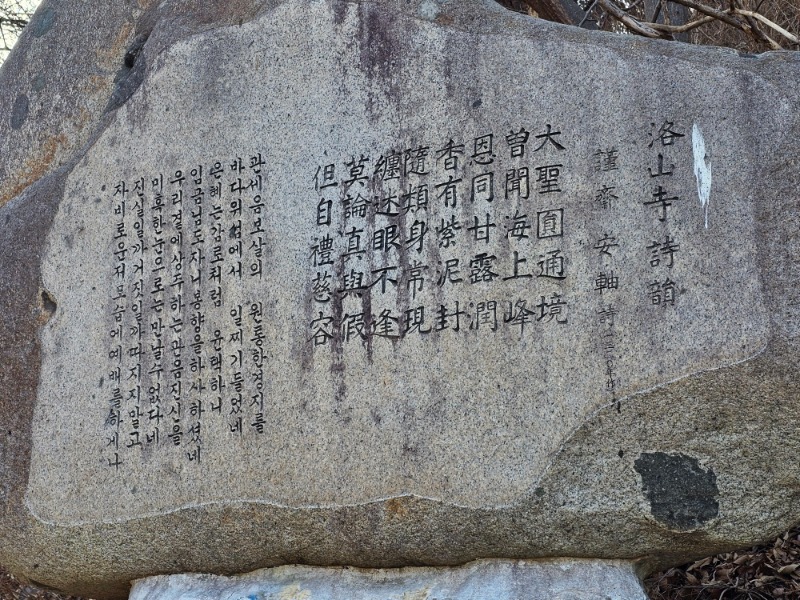 洛山寺詩韻
謹齋 安軸 詩
大聖圓通境
曾聞海上峰
恩同甘露潤
香有紫泥封
隨類身常現
纏迷眼不逢
莫論真與假
但自禮慈容
관세음보살의 원통한경지를
바다위섬에서 일찌기들었네
은혜는감로처럼 윤택하니
임금님도자니봉향을하사하셨네
우리곁에상주하는관음진신을
미혹한눈으로는만날수없다네
진실일까거짓일까따지지말고
자비로운저모습에예배를하게나